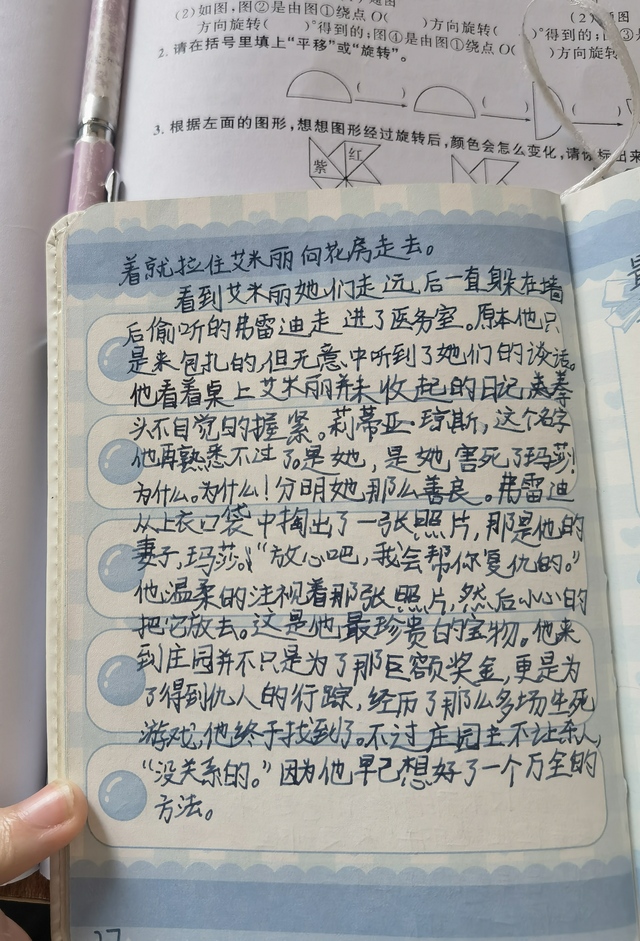 通图
(2)如图,图②是由图①绕点O( )方向旋转( )°得到的;图③
方向旋转( )°得到的;图④是由图①绕点O( )方向旋转
(2)通图
2.请在括号里填上“平移”或“旋转”。
3.根据左面的图形,想想图形经过旋转后,颜色会怎么变化,请你标出来
紫 红
着就拉住艾米丽向花房走去。
看到艾米丽她们走远,后一直躲在墙
后偷听的弗雷迪走进了医务室。原本他只
是来包扎的,但无意中听到了她们的谈话。
他看着桌上艾米丽并未收起的日记,拳
头不自觉的握紧。莉蒂亚·琼斯,这个名字
他再熟悉不过了。是她,是她害死了玛莎!
为什么。为什么!分明她那么善良。弗雷迪
从上衣口袋中掏出了一张照片,那是他的
妻子,玛莎。“放心吧,我会帮你复仇的。”
他温柔的注视着那张照片,然后小心的
把它放去。这是他最珍贵的宝物。他来
到庄园并不只是为了那巨额奖金,更是为
了得到仇人的行踪,经历了那么多场生死
游戏,他终于找到了。不过庄园主不让杀人,
“没关系的。”因为他早已想好了一个万全的
方法。